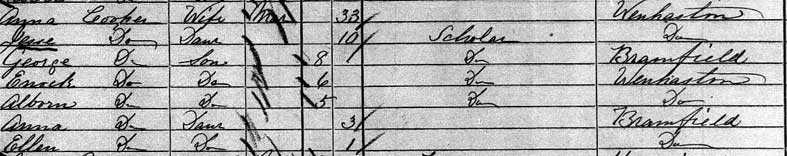 Anna Cooper Wife Mar 38 Wenhaston
Jesse Do Daur 10 Scholar Do
George Do Son 8 Do Bramfield
Enoch Do Do 6 Do Wenhaston
Alborn Do Do 5 Do Do
Anna Do Daur 3 Bramfield
Ellen Do Do 1 Do